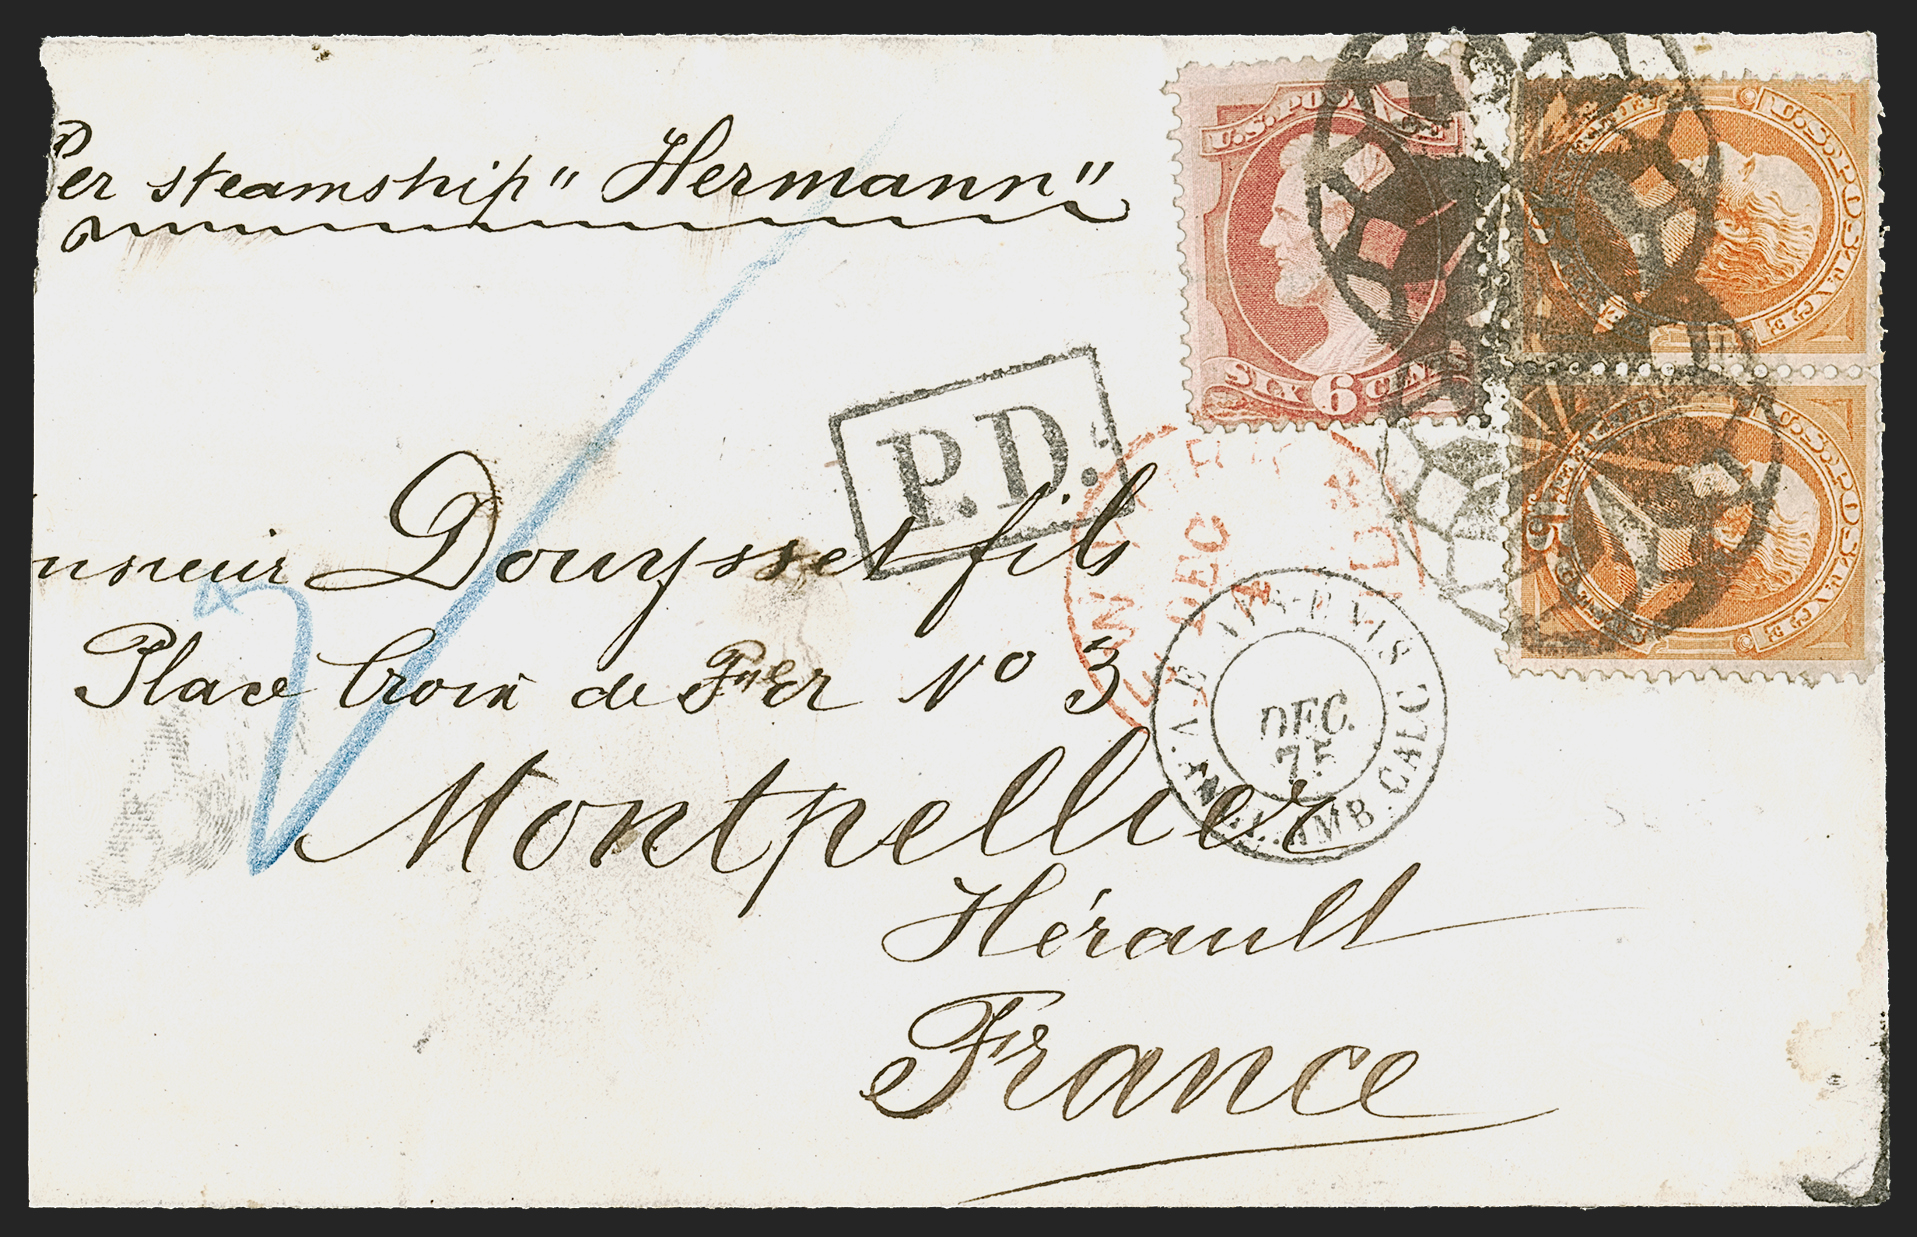 Per steamship "Hermann"
U.S. POSTAGE
SIX 6 CENTS
U.S. POSTAGE
U.S. POSTAGE
15
P.D.
nsieur Douysset fils
DEC
Place Croix de Fer No 3
DEC.
75
AMB. CALC
Montpellier
Hérault
France